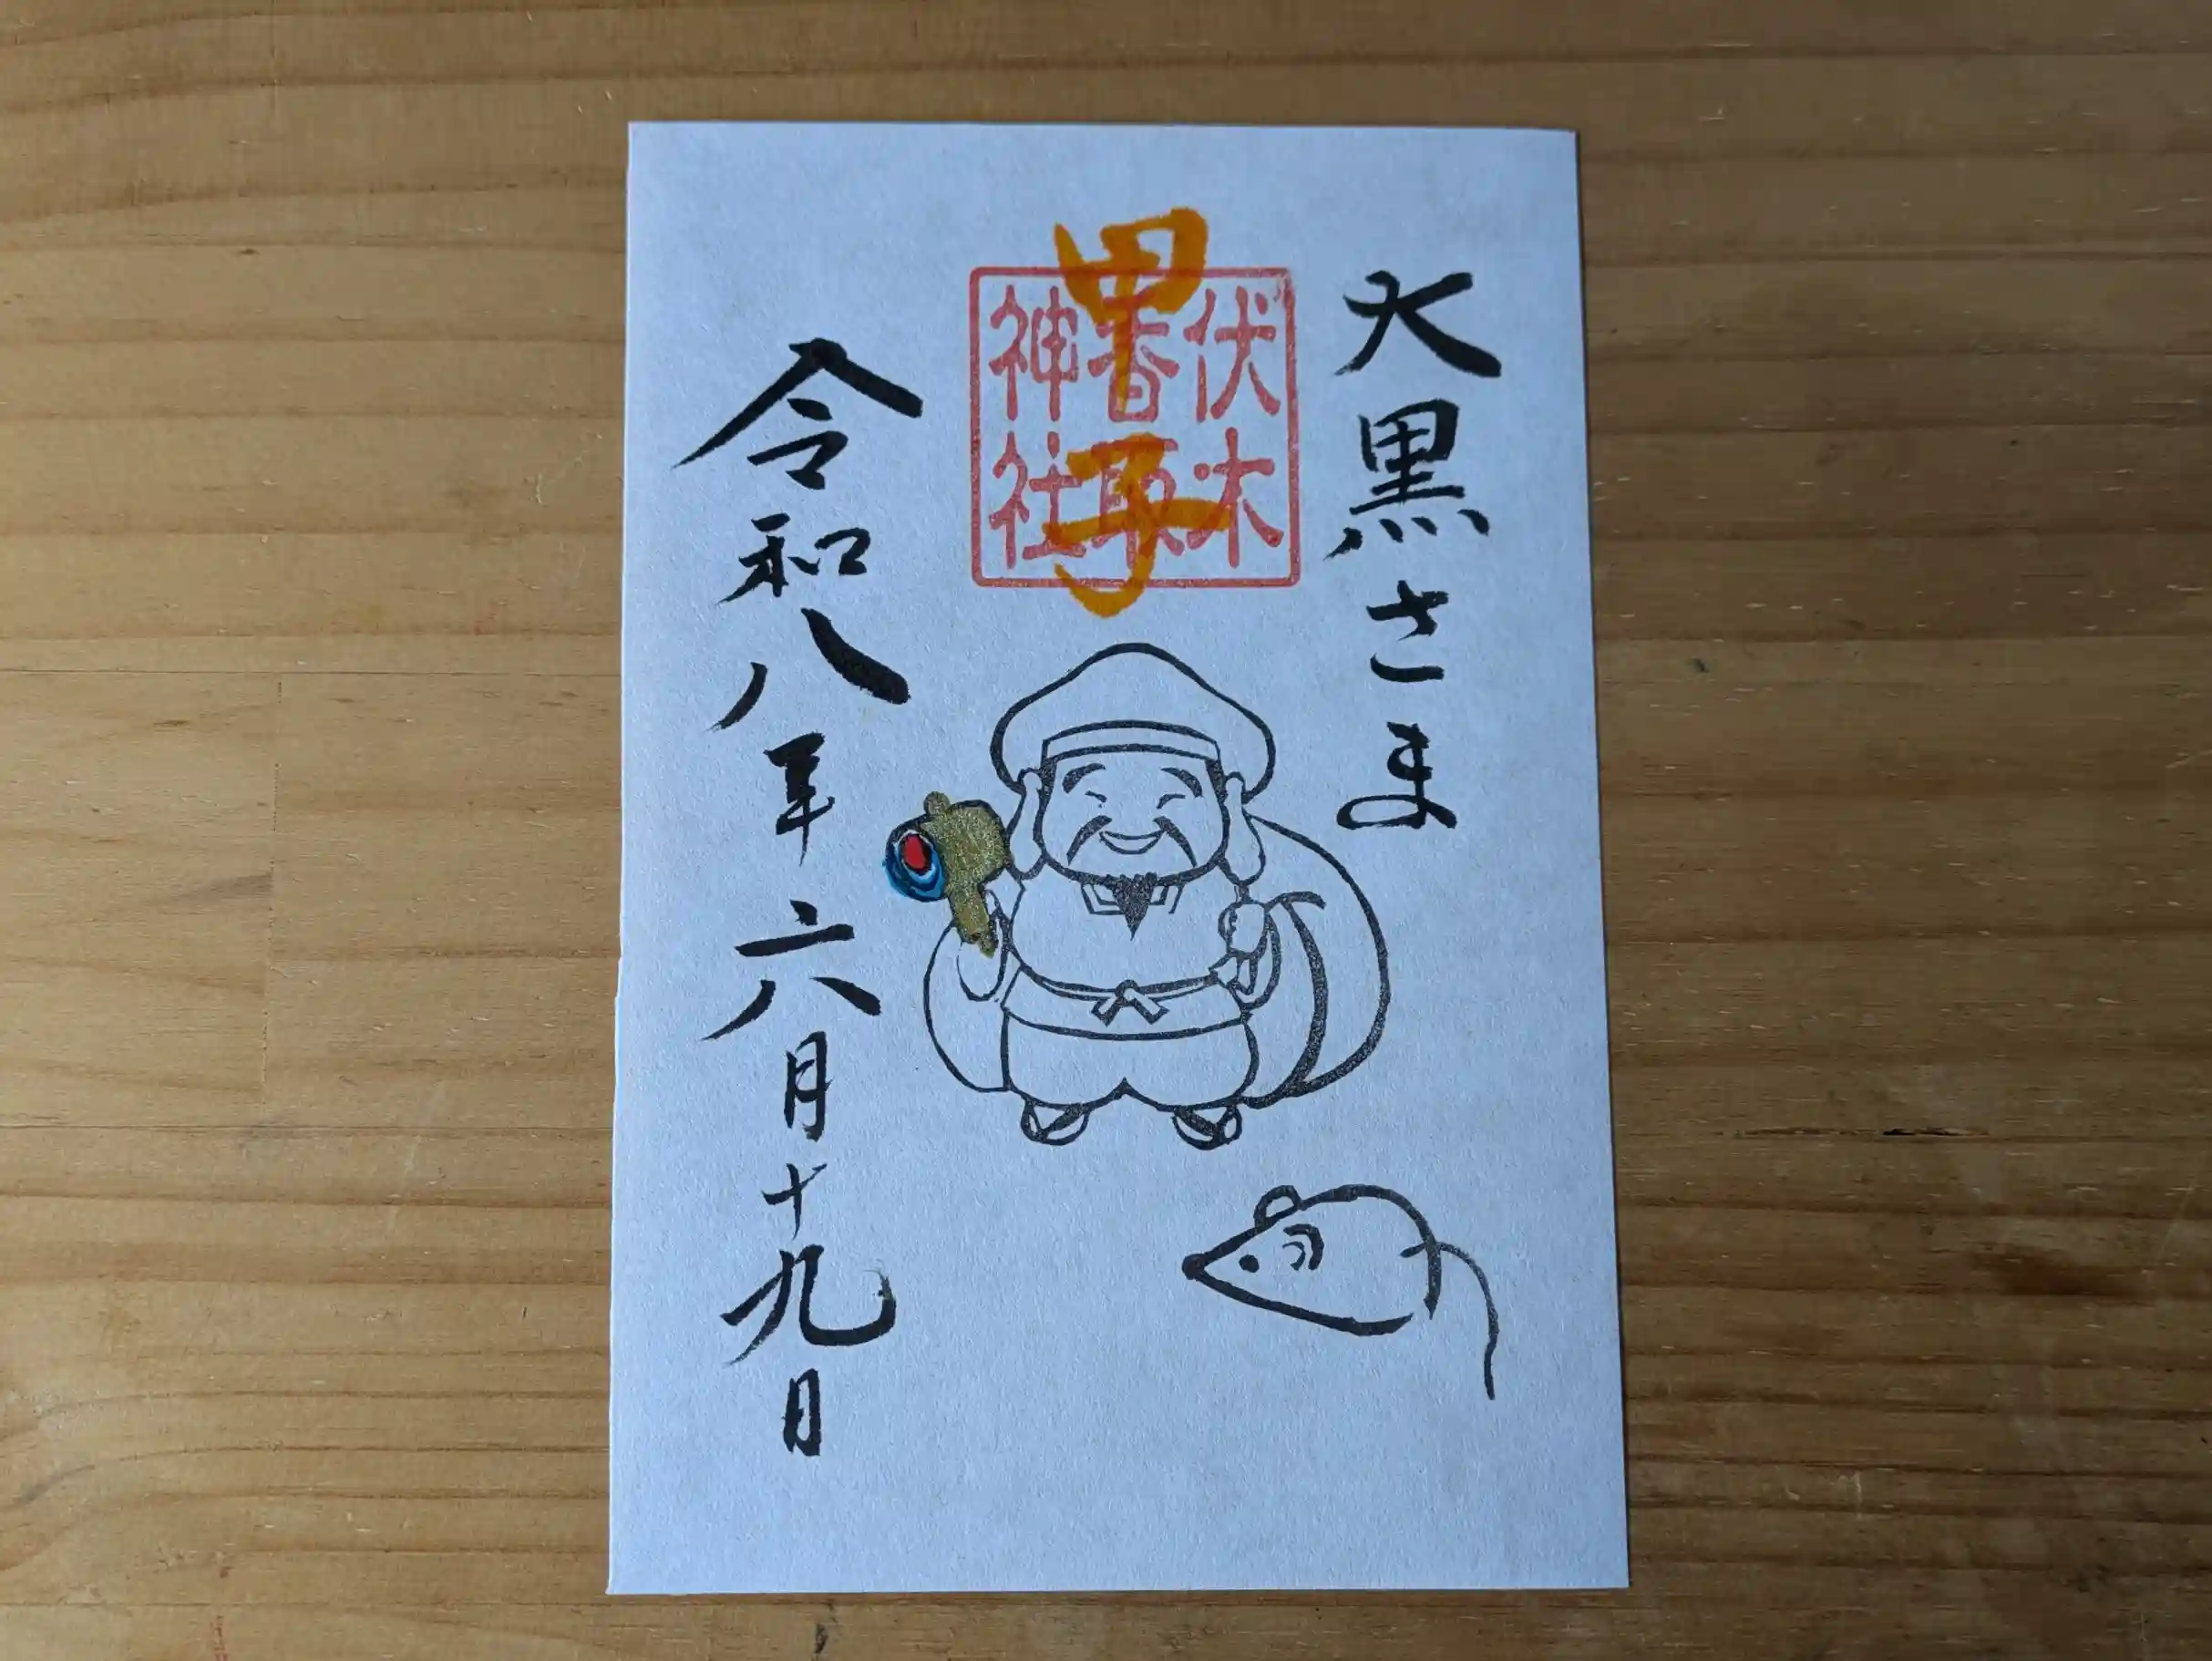 大黒さま
甲子
伏木
香取
神社
令和八年六月十九日